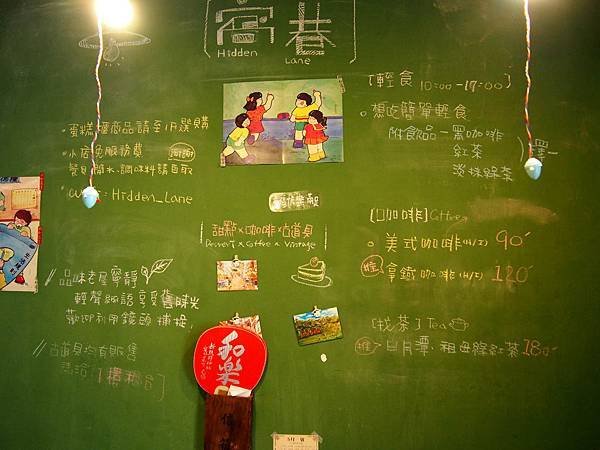 窩巷
Hidden Lane
・蛋糕櫃商品請至1F選購
・小店免服務費
餐具開水、調味料請自取
: Hidden_Lane
甜點×咖啡×古道具
Dessert × Coffee × Vintage
//品味老屋寧靜
輕聲細語享受舊時光
歡迎利用鏡頭捕捉,
//古道具均有販售
請洽1樓櫃台
[輕食] 10:00-17:00
・想吃簡單輕食
附飲品-黑咖啡
紅茶
淡抹綠茶
擇一
[咖啡] Coffee
美式咖啡(H/I) 90
推 拿鐵咖啡(H/I) 120
[找茶] Tea
推 日月潭・祖母綠紅茶 180
和樂